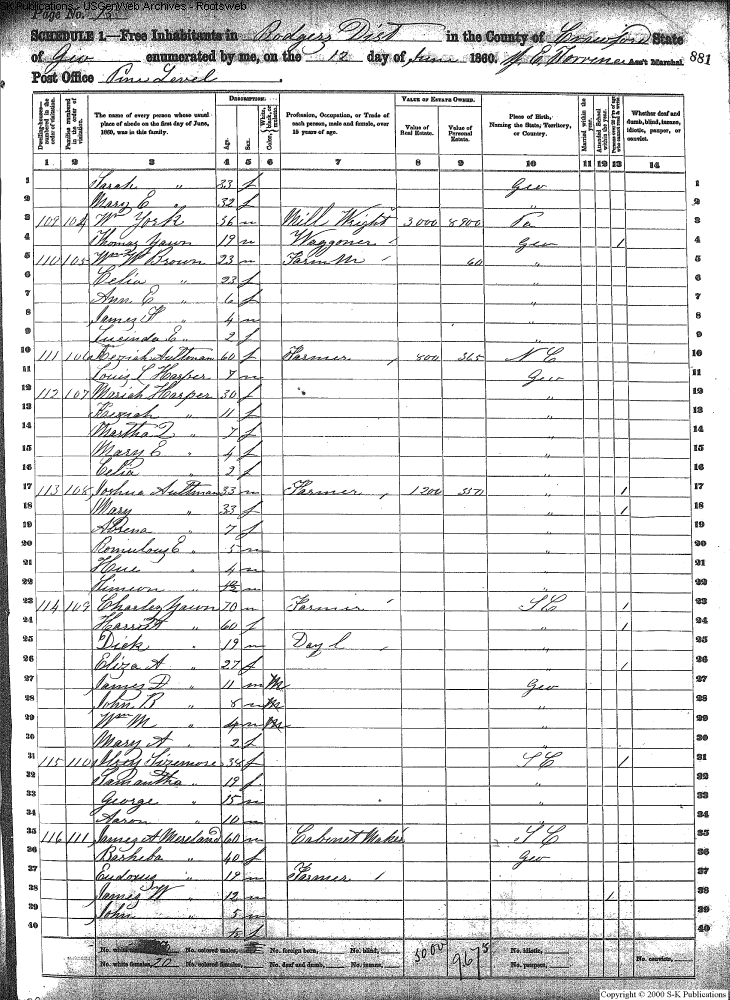 S-K Publications - USGenWeb Archives - Rootsweb
Page No. 15
SCHEDULE 1.—Free Inhabitants in Rodgers Dist in the County of Crawford State
of Geo enumerated by me, on the 12 day of June 1860. Ass't Marshal. 881
Post Office Pine Level
Dwelling-houses—numbered in the order of visitation.
Families numbered in the order of visitation.
The name of every person whose usual place of abode on the first day of June, 1860, was in this family.
DESCRIPTION.
Age.
Sex.
Color, White, black, or mulatto.
Profession, Occupation, or Trade of each person, male and female, over 15 years of age.
VALUE OF ESTATE OWNED.
Value of Real Estate.
Value of Personal Estate.
Place of Birth, Naming the State, Territory, or Country.
Married within the year.
Attended School within the year.
Persons over 20 y'rs of age who cannot read & write.
Whether deaf and dumb, blind, insane, idiotic, pauper, or convict.
1 2 3 4 5 6 7 8 9 10 11 12 13 14
1 Sarah " 33 f Geo 1
2 Mary E " 32 f " 2
3 109 104 Wm York 36 m Mill Wright 3000 8900 Pa 3
4 Thomas Yawn 19 m Waggoner Geo / 4
5 110 105 Wm W Brown 23 m Farm 60 " 5
6 Celia " 23 f " 6
7 Ann E " 6 f " 7
8 James H " 4 m " 8
9 Lucinda E " 2 f " 9
10 111 106 Keziah Aultman 60 f Farmer 800 365 N C 10
11 Louis L Harper 7 m Geo 11
12 112 107 Mariah Harper 30 f " 12
13 Keziah " 11 f " 13
14 Martha " 7 f " 14
15 Mary E " 4 f " 15
16 Celia " 2 f " 16
17 113 108 Joshua Aultman 33 m Farmer 1200 350 " / 17
18 Mary " 33 f " / 18
19 " 7 f " 19
20 Romulous E " 5 m " 20
21 Hue " 4 m " 21
22 Simeon " m " 22
23 114 109 Charley Yawn 70 m Farmer S C / 23
24 Harrott " 60 f " / 24
25 Dick " 19 m Day l " 25
26 Eliza A " 27 f " / 26
27 James D " 11 m M Geo 27
28 John R " 8 m M " 28
29 Wm M " 4 m M " 29
30 Mary A " 2 f " 30
31 115 110 Sizemore 38 f S C / 31
32 Samantha " 19 f " 32
33 George " 15 m " 33
34 Aaron " 10 m " 34
35 116 111 James A Moreland 60 m Cabinet Maker S C 35
36 Barsheba " 40 f Geo 36
37 Eudoxus " 19 m Farmer " 37
38 James W " 12 m " / 38
39 John " 5 m " 39
40 f 40
No. white males, No. colored males, No. foreign born, No. blind, 5000 9675 No. idiotic, No. convicts,
No. white females, 20 No. colored females, No. deaf and dumb, No. insane, No. paupers,
Copyright © 2000 S-K Publications